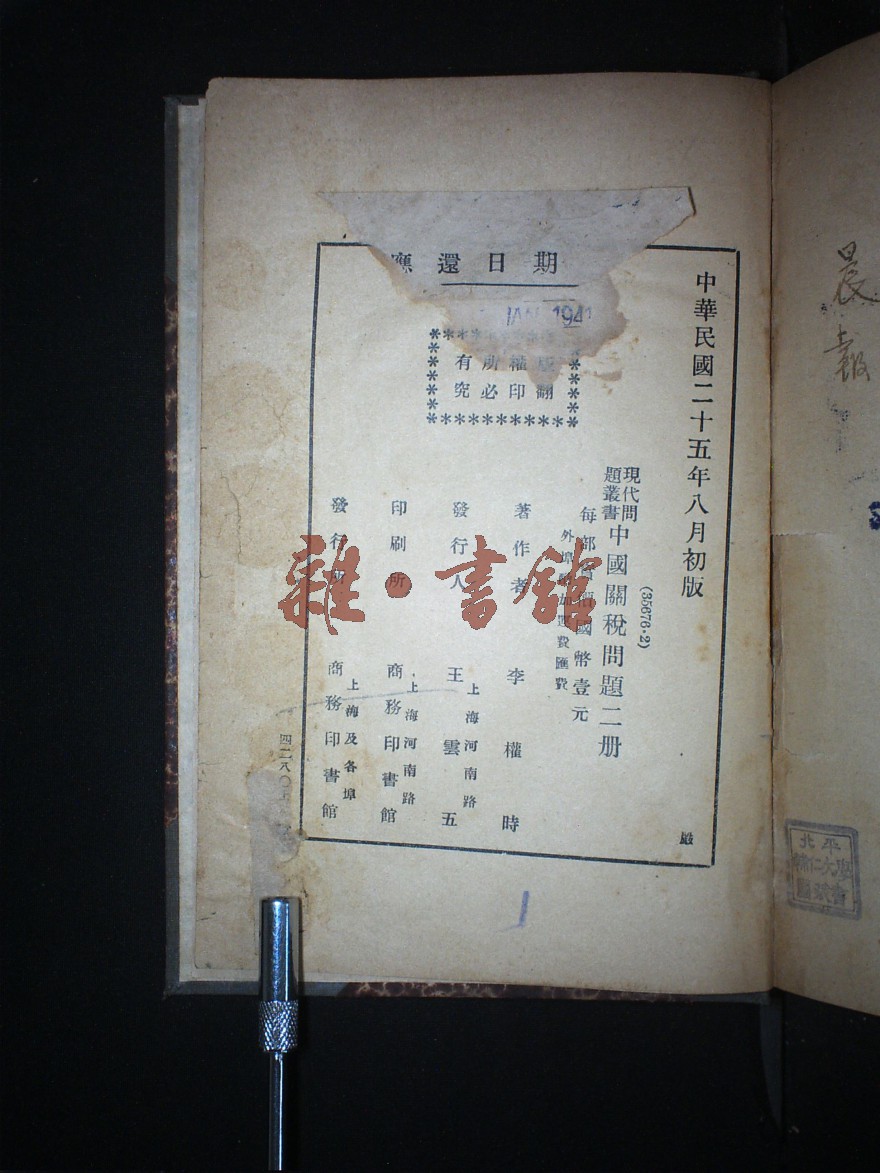 中華民國二十五年八月初版
(35676·2)
現代問題叢書
中國關稅問題二册
國幣壹元
費匯費
著作者 李權時
發行人 王雲五
上海河南路
印刷所 商務印書館
上海河南路
發行所 商務印書館
上海及各埠
版權所有
翻印必究
應還日期
JAN 1941
四二八〇
嚴
晨報
北平
輔仁大學
圖書